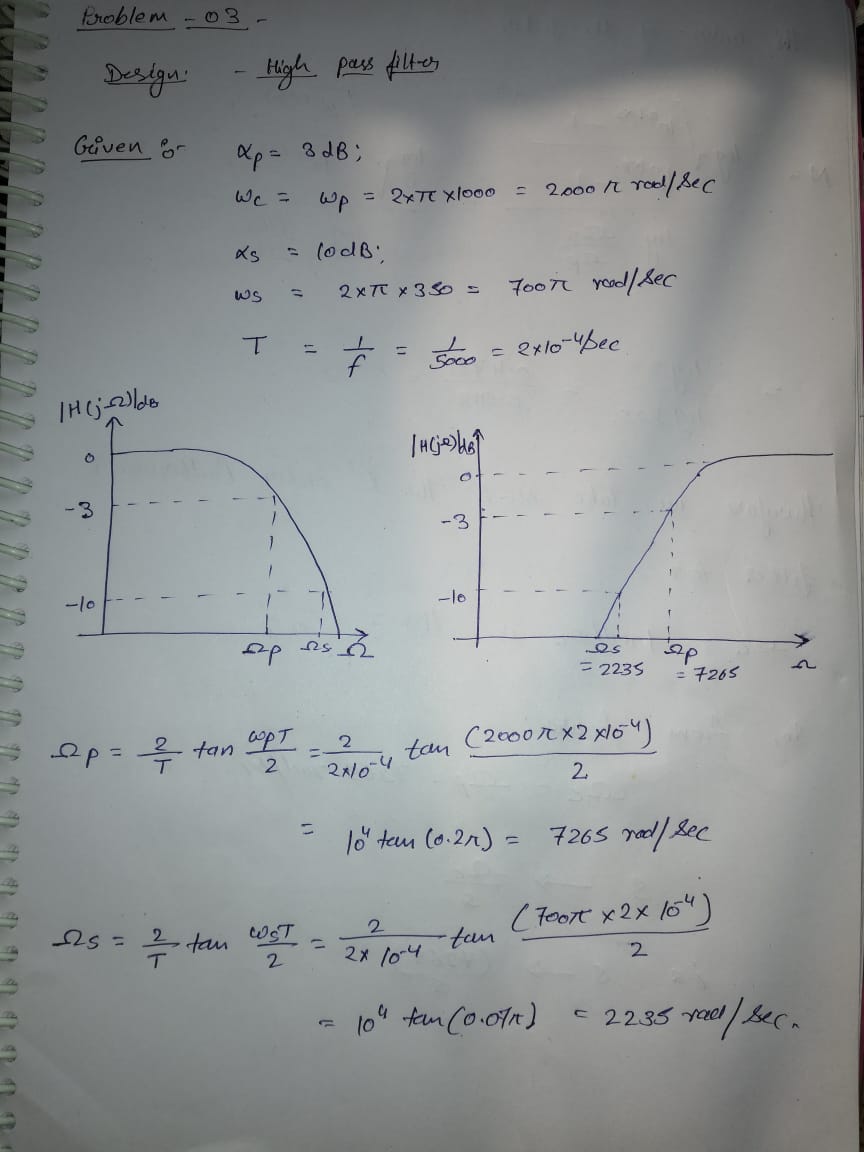 Problem - 03 -
Design: - High pass filter
Given :-
αp = 3 dB;
ωc = ωp = 2×π×1000 = 2000 π rad/sec
αs = 10dB;
ωs = 2×π×350 = 700π rad/sec
T = 1/f = 1/5000 = 2×10⁻⁴ sec
|H(jΩ)|dB
0
-3
-10
Ωp Ωs Ω
|H(jΩ)|dB
0
-3
-10
Ωs Ωp
= 2235 = 7265 Ω
Ωp = 2/T tan ωpT/2 = 2/2×10⁻⁴ tan (2000π×2×10⁻⁴)/2
= 10⁴ tan (0.2π) = 7265 rad/sec
Ωs = 2/T tan ωsT/2 = 2/2×10⁻⁴ tan (700π×2×10⁻⁴)/2
= 10⁴ tan (0.07π) = 2235 rad/sec.